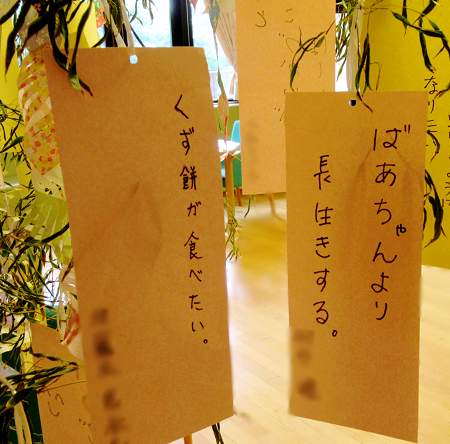 ばあちゃんより
長生きする。
くず餅が食べたい。
なりた